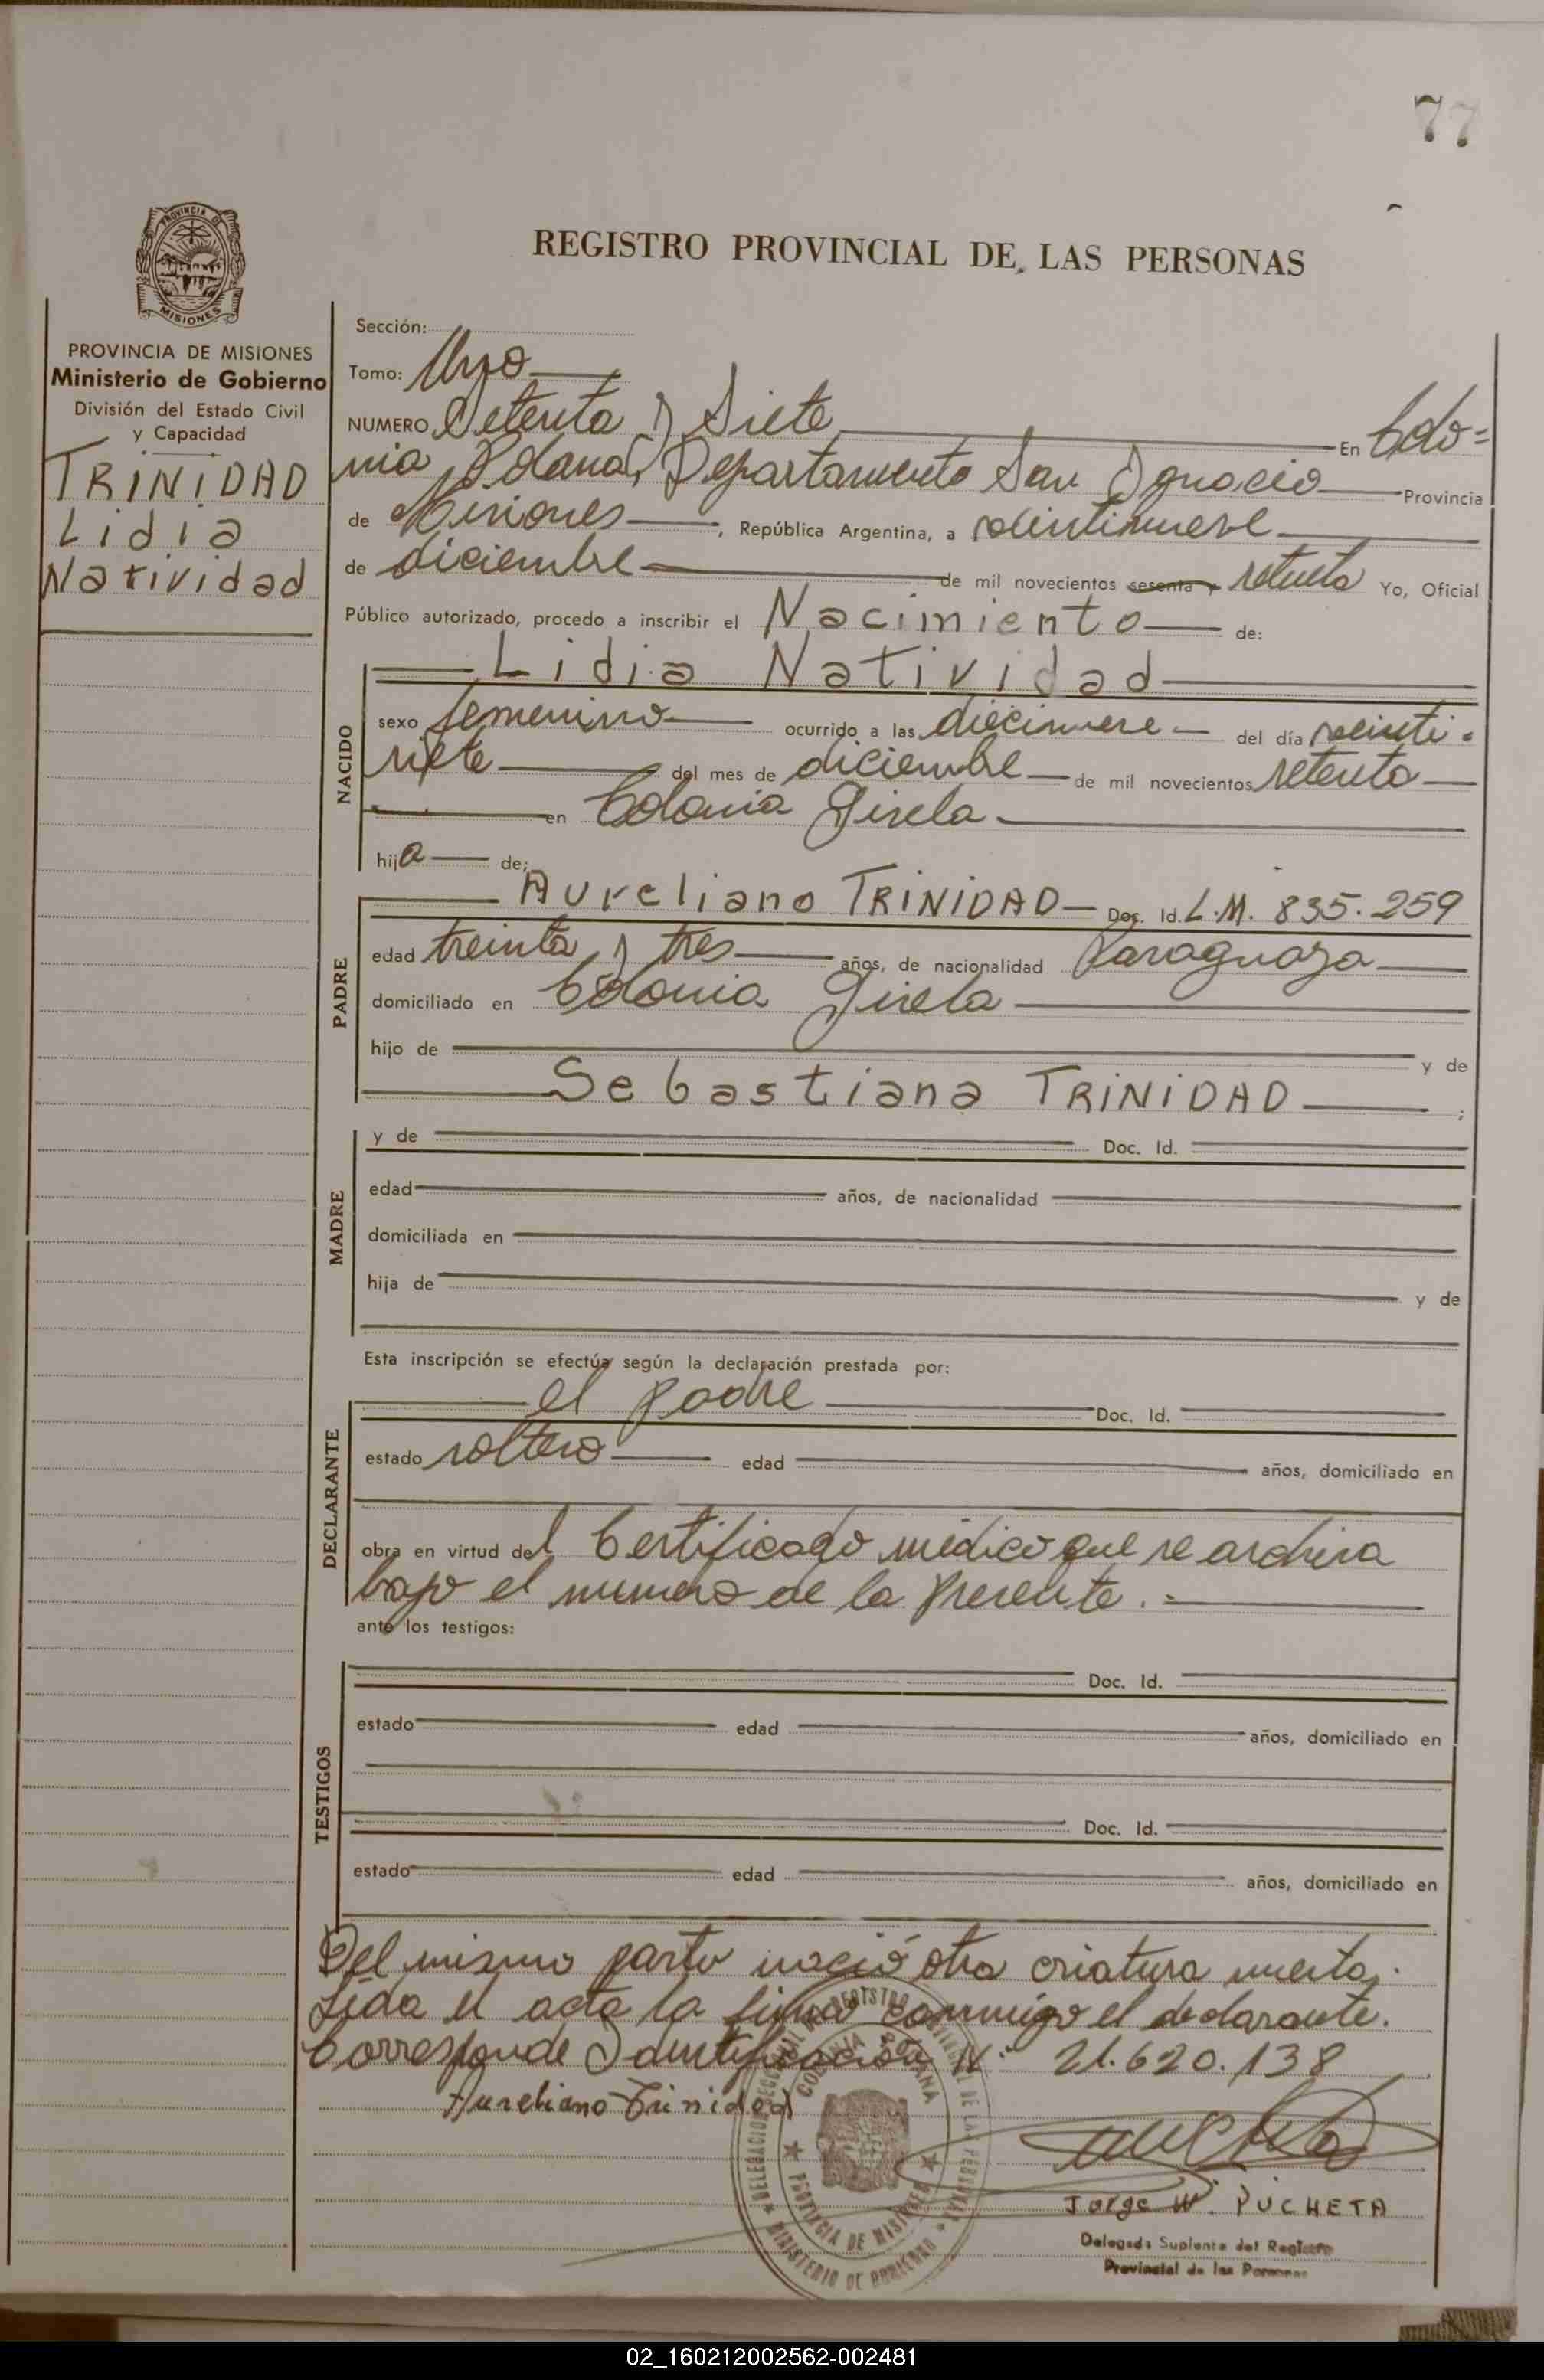 77
REGISTRO PROVINCIAL DE LAS PERSONAS
PROVINCIA DE MISIONES
Ministerio de Gobierno
División del Estado Civil
y Capacidad
TRINIDAD
Lidia
Natividad
Sección:
Tomo: Uno
NUMERO Setenta y Siete En Colo=
nia Polana, Departamento San Ignacio Provincia
de Misiones, República Argentina, a veintinueve
de diciembre de mil novecientos sesenta y setenta Yo, Oficial
Público autorizado, procedo a inscribir el Nacimiento de:
Lidia Natividad
NACIDO
sexo femenino ocurrido a las diecinueve del día veinti-
siete del mes de diciembre de mil novecientos setenta
en Colonia Gisela
hija de:
PADRE
Aureliano TRINIDAD Doc. Id. L.M. 835.259
edad treinta y tres años, de nacionalidad Paraguaya
domiciliado en Colonia Gisela
hijo de y de
Sebastiana TRINIDAD ;
MADRE
y de Doc. Id.
edad años, de nacionalidad
domiciliada en
hija de y de
Esta inscripción se efectúa según la declaración prestada por:
DECLARANTE
el padre Doc. Id.
estado soltero edad años, domiciliado en
obra en virtud del Certificado médico que se archiva
bajo el numero de la presente.=
ante los testigos:
TESTIGOS
Doc. Id.
estado edad años, domiciliado en
Doc. Id.
estado edad años, domiciliado en
Del mismo parto nació otra criatura muerta.
Leida el acta la firma conmigo el declarante.
Corresponde Identificación Nº 21.620.138
Aureliano Trinidad
COLONIA POLANA
PROVINCIA DE MISIONES
MINISTERIO DE GOBIERNO
Jorge W. PUCHETA
Delegado Suplente del Registro
Provincial de las Personas
02_160212002562-002481